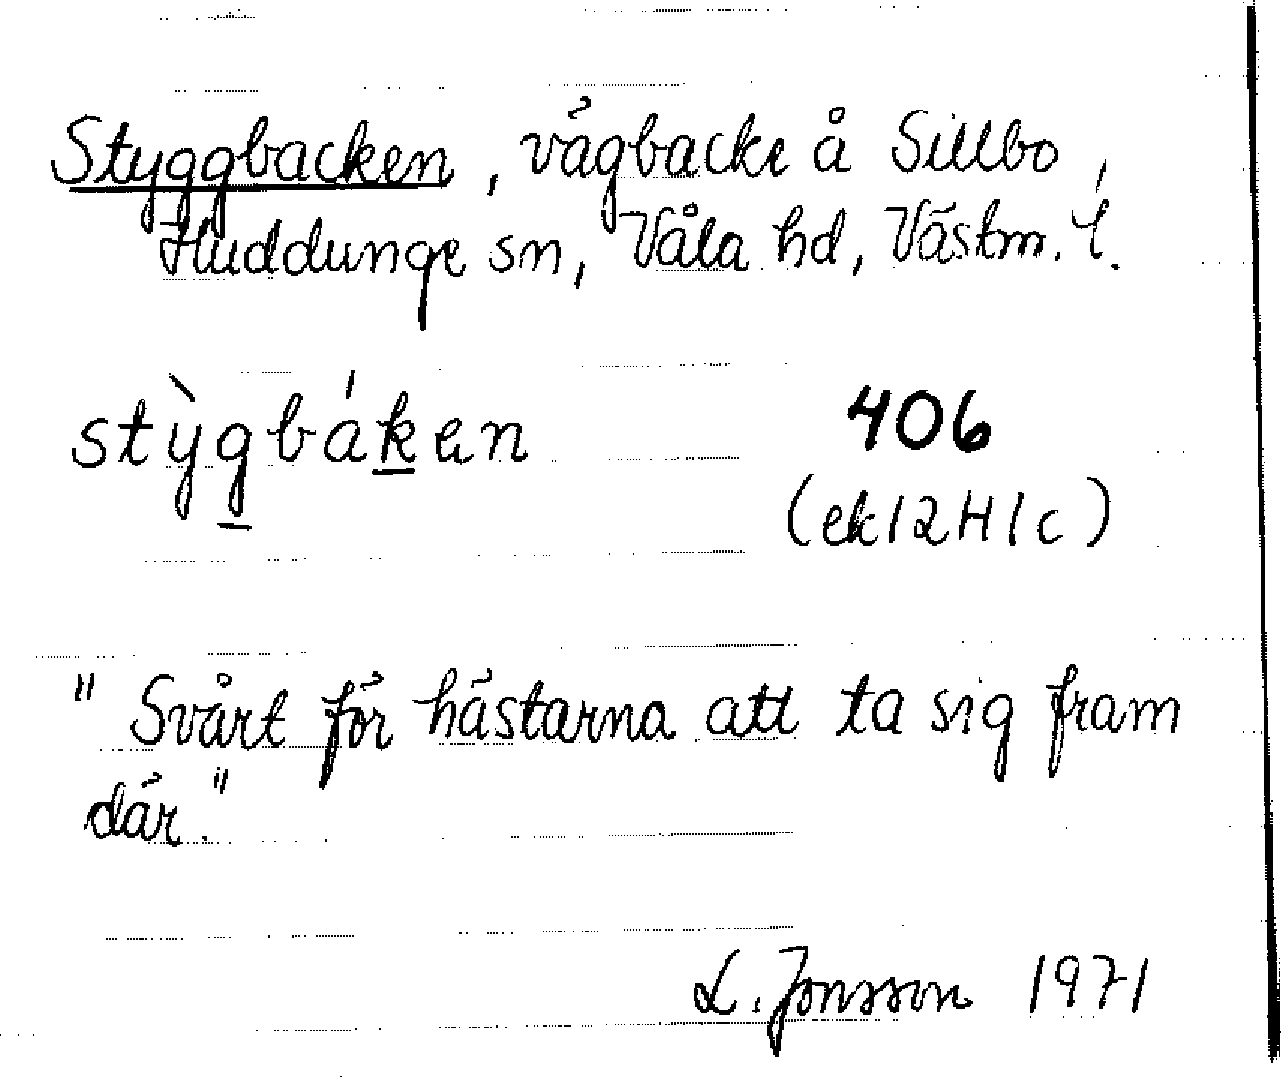 Styggbacken, vägbacke å Sillbo,
Huddunge sn, Våla hd, Västm. l.
stỳgbáken
406
(ek 12 H 1 c)
"Svårt för hästarna att ta sig fram
där."
L. Jonsson 1971